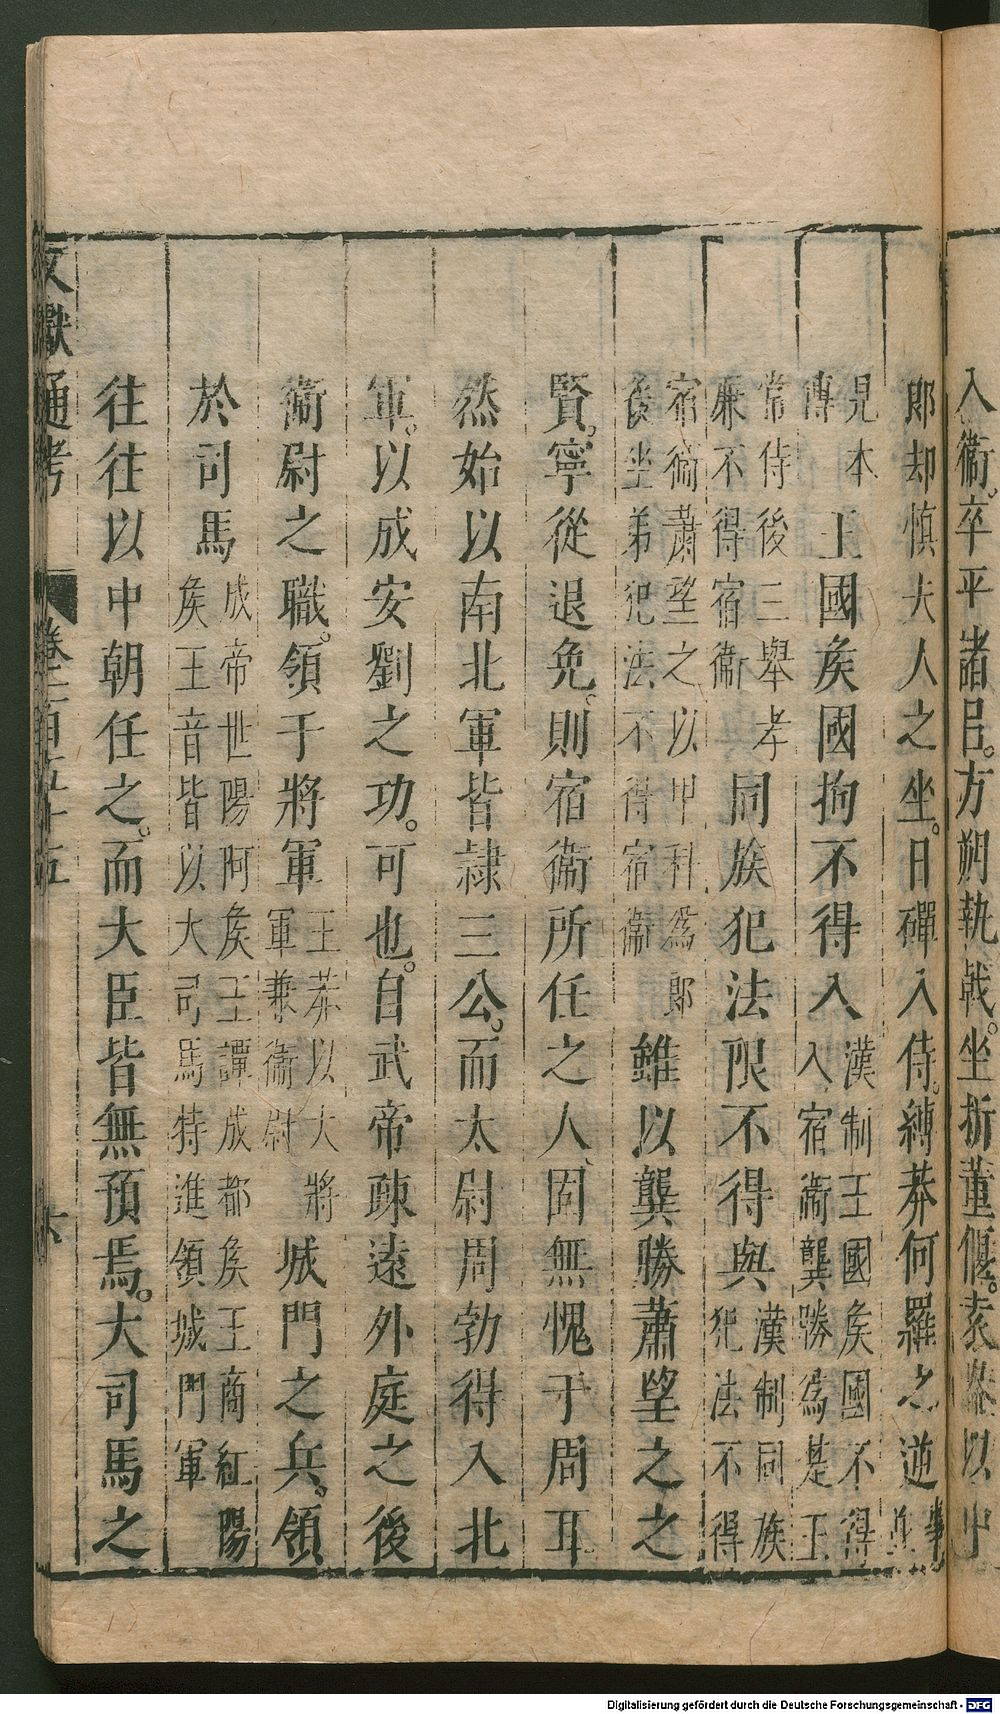 入衛卒平諸呂。方朔執戟。坐折董偃。袁盎以中
郎却慎夫人之坐。日磾入侍。縛莽何羅之逆事並
見本傳王國矦國拘不得入漢制王國矦國不得入宿衛龔勝爲是王
常侍後三舉孝廉不得宿衛同族犯法限不得與漢制同族犯法不得
宿衛蕭望之以甲科爲郎後坐弟犯法不得宿衛雖以龔勝蕭望之之
賢。寧從退免。則宿衛所任之人、固無愧于周耳
然始以南北軍皆隷三公。而太尉周勃得入北
軍。以成安劉之功。可也。自武帝疎遠外庭之後
衛尉之職。領于將軍王莽以大將軍兼衛尉城門之兵。領
於司馬成帝世陽阿矦王譚成都矦王商紅陽矦王音皆以大司馬特進領城門軍
往往以中朝任之。而大臣皆無預焉。大司馬之
文獻通考
卷一百五十五
六
Digitalisierung gefördert durch die Deutsche Forschungsgemeinschaft - DFG